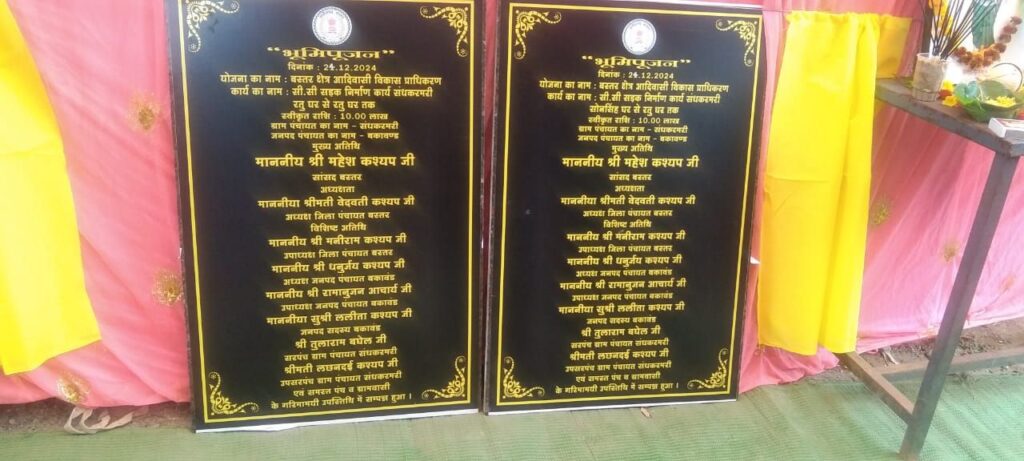 “भूमिपूजन”
दिनांक : 24.12.2024
योजना का नाम : बस्तर क्षेत्र आदिवासी विकास प्राधिकरण
कार्य का नाम : सी.सी सड़क निर्माण कार्य संधकरमरी
रतु घर से रतु घर तक
स्वीकृत राशि : 10.00 लाख
ग्राम पंचायत का नाम - संधकरमरी
जनपद पंचायत का नाम - बकावण्ड
मुख्य अतिथि
माननीय श्री महेश कश्यप जी
सांसद बस्तर
अध्यक्षता
माननीया श्रीमती वेदवती कश्यप जी
अध्यक्ष जिला पंचायत बस्तर
विशिष्ट अतिथि
माननीय श्री मनीराम कश्यप जी
उपाध्यक्ष जिला पंचायत बस्तर
माननीय श्री धनुर्जय कश्यप जी
अध्यक्ष जनपद पंचायत बकावंड
माननीय श्री रामानुजन आचार्य जी
उपाध्यक्ष जनपद पंचायत बकावंड
माननीया सुश्री ललीता कश्यप जी
जनपद सदस्य बकावंड
श्री तुलाराम बघेल जी
सरपंच ग्राम पंचायत संधकरमरी
श्रीमती लछनदई कश्यप जी
उपसरपंच ग्राम पंचायत संधकरमरी
एवं समस्त पंच व ग्रामवासी
के गरिमामयी उपस्तिथि में सम्पन्न हुआ ।
“भूमिपूजन”
दिनांक : 24.12.2024
योजना का नाम : बस्तर क्षेत्र आदिवासी विकास प्राधिकरण
कार्य का नाम : सी.सी सड़क निर्माण कार्य संधकरमरी
सोनसिंह घर से रतु घर तक
स्वीकृत राशि : 10.00 लाख
ग्राम पंचायत का नाम - संधकरमरी
जनपद पंचायत का नाम - बकावण्ड
मुख्य अतिथि
माननीय श्री महेश कश्यप जी
सांसद बस्तर
अध्यक्षता
माननीया श्रीमती वेदवती कश्यप जी
अध्यक्ष जिला पंचायत बस्तर
विशिष्ट अतिथि
माननीय श्री मनीराम कश्यप जी
उपाध्यक्ष जिला पंचायत बस्तर
माननीय श्री धनुर्जय कश्यप जी
अध्यक्ष जनपद पंचायत बकावंड
माननीय श्री रामानुजन आचार्य जी
उपाध्यक्ष जनपद पंचायत बकावंड
माननीया सुश्री ललीता कश्यप जी
जनपद सदस्य बकावंड
श्री तुलाराम बघेल जी
सरपंच ग्राम पंचायत संधकरमरी
श्रीमती लछनदई कश्यप जी
उपसरपंच ग्राम पंचायत संधकरमरी
एवं समस्त पंच व ग्रामवासी
के गरिमामयी उपस्तिथि में सम्पन्न हुआ ।